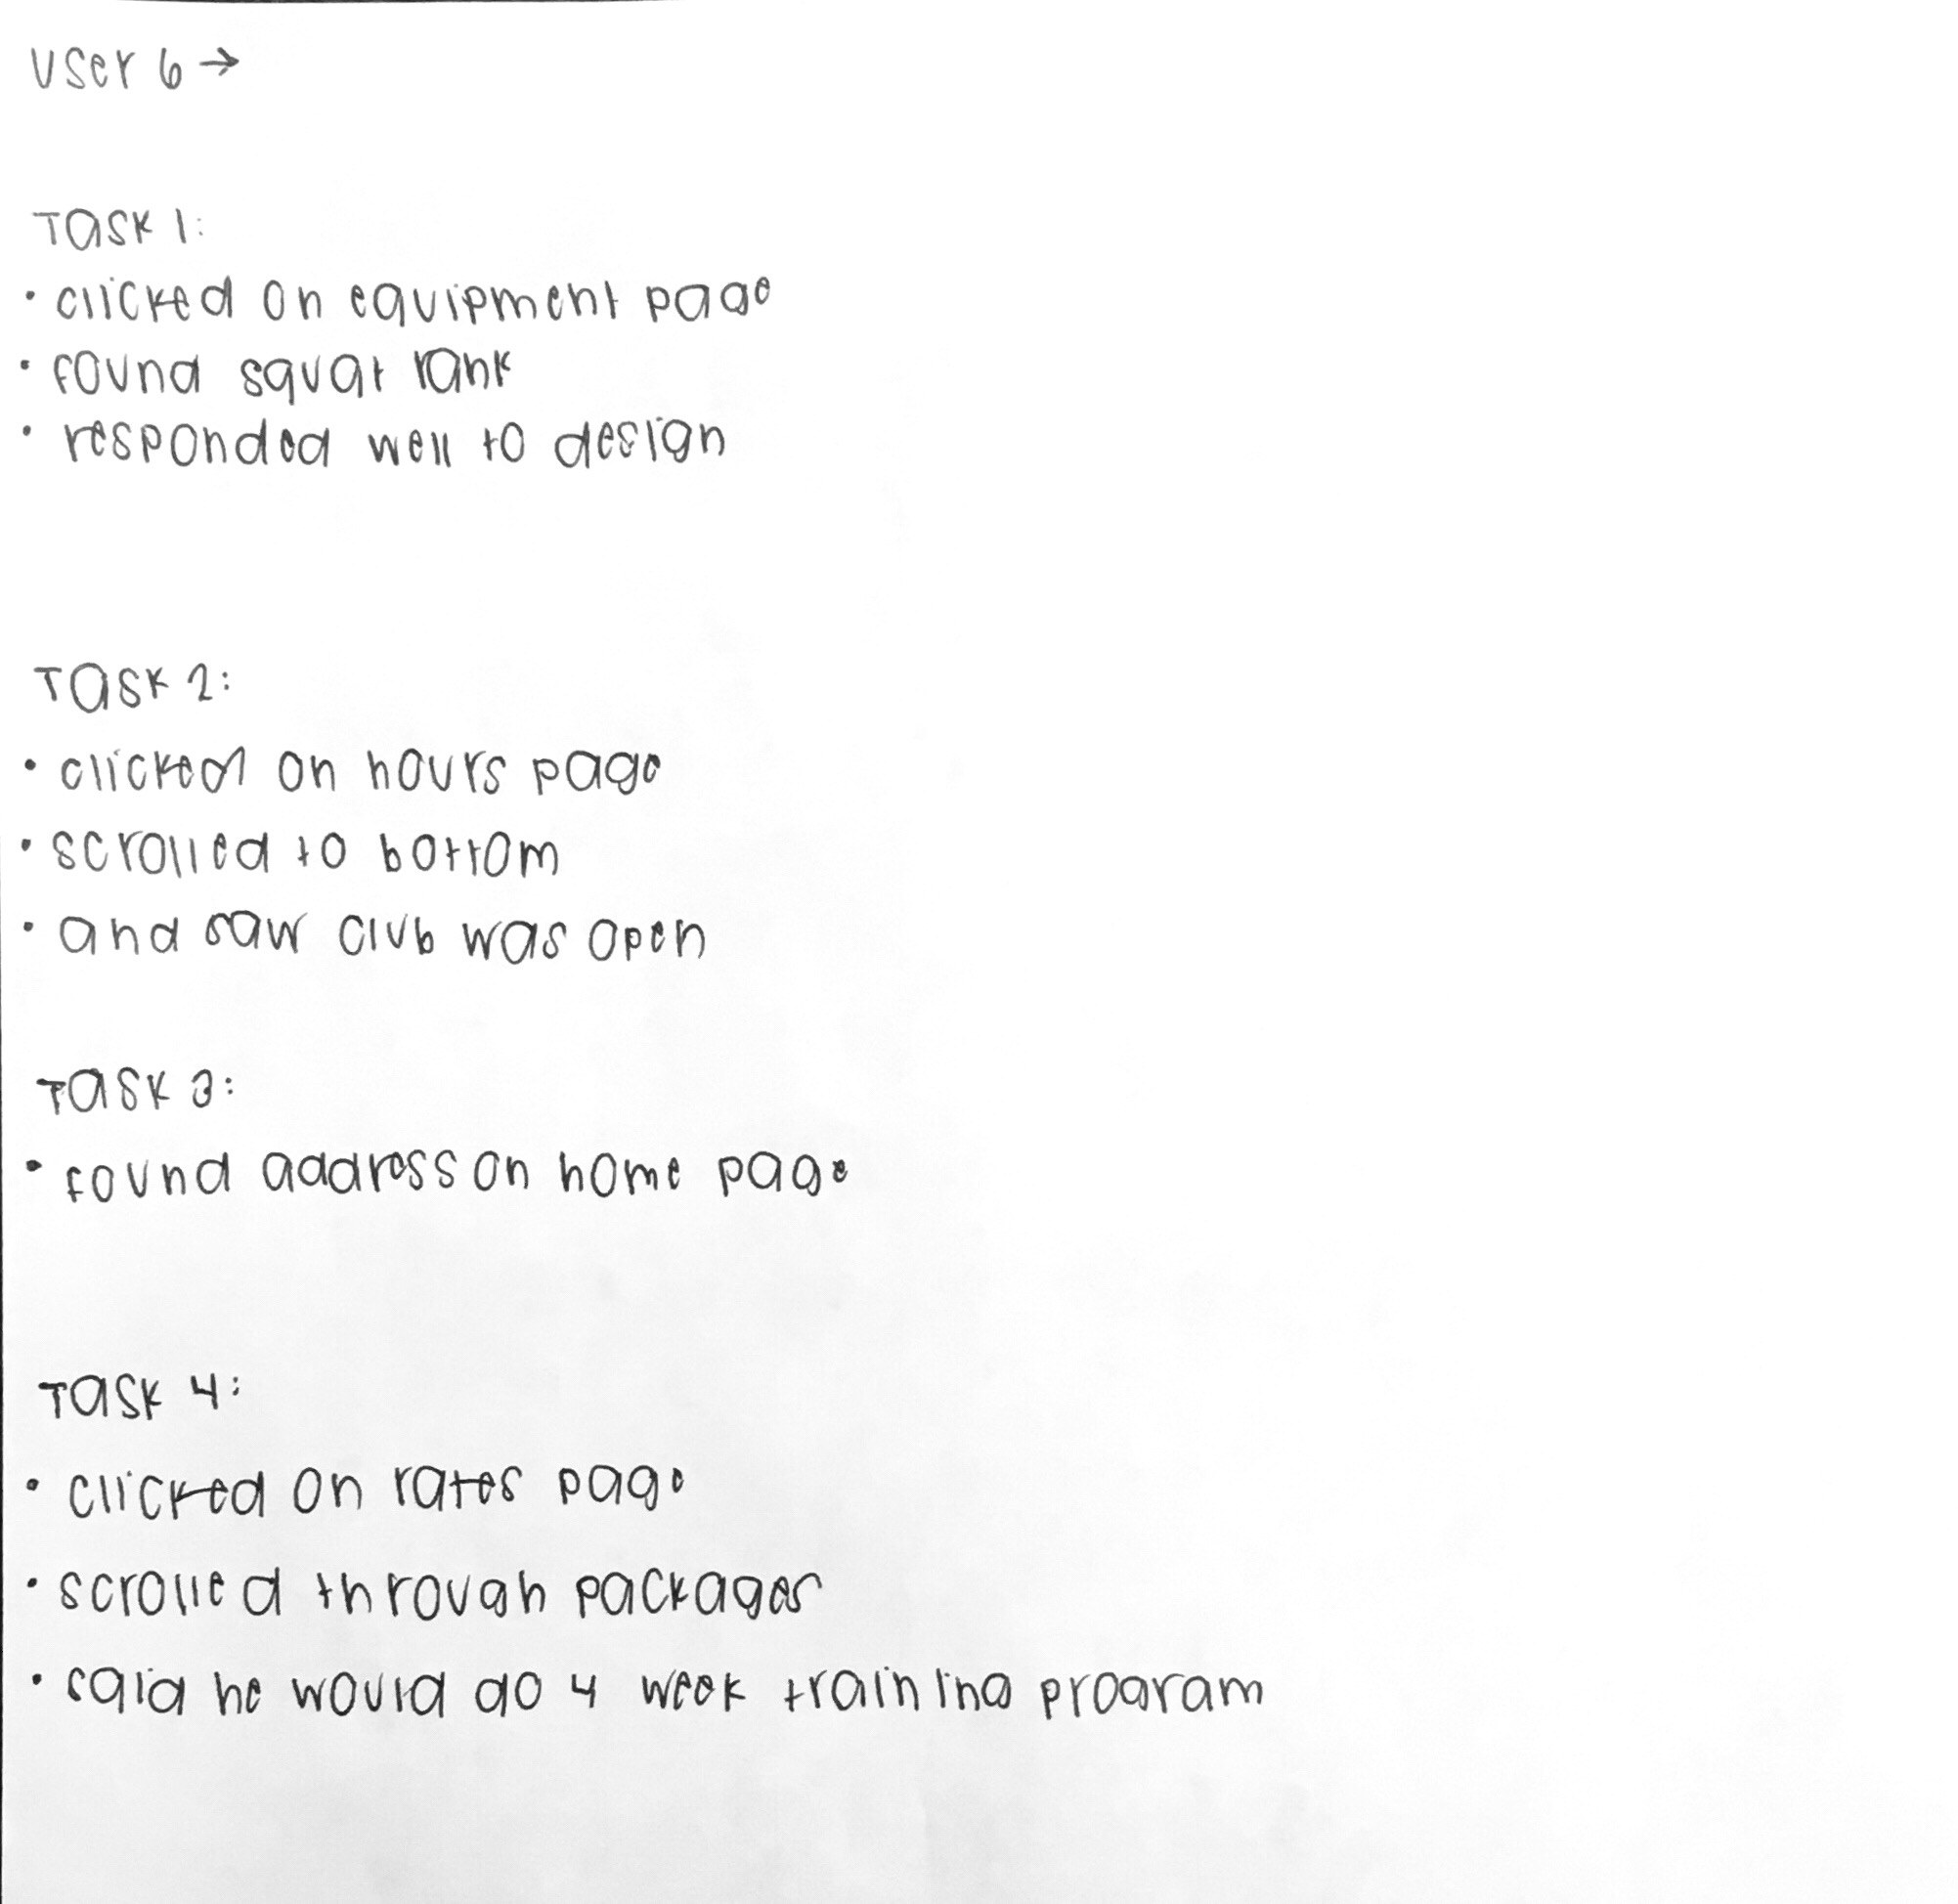 User 6 →
Task 1:
• clicked on equipment page
• found squat rank
• responded well to design
Task 2:
• clicked on hours page
• scrolled to bottom
• and saw club was open
Task 3:
• found address on home page
Task 4:
• clicked on rates page
• scrolled through packages
• said he would do 4 week training program